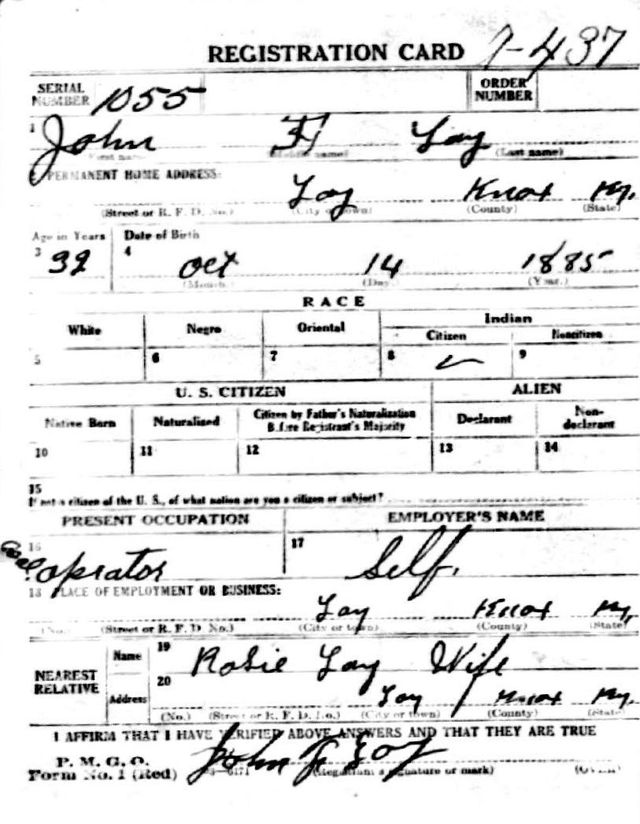 REGISTRATION CARD 7-437
SERIAL NUMBER 1055 ORDER NUMBER
1 John F Lay
First name (Middle name) (Last name)
PERMANENT HOME ADDRESS:
Lay Knox Ky.
(Street or R. F. D. No.) (City or town) (County) (State)
Age in Years Date of Birth
3 32 4 Oct 14 1885
(Month.) (Day.) (Year.)
RACE
White Negro Oriental Indian
Citizen Noncitizen
5 6 7 8 ✓ 9
U. S. CITIZEN ALIEN
Native Born Naturalized Citizen by Father's Naturalization Before Registrant's Majority Declarant Non-declarant
10 11 12 13 14
15
If not a citizen of the U. S., of what nation are you a citizen or subject?
PRESENT OCCUPATION EMPLOYER'S NAME
16 Coal oprator 17 Self.
18 PLACE OF EMPLOYMENT OR BUSINESS:
Lay Knox Ky.
(No.) (Street or R. F. D. No.) (City or town) (County) (State)
NEAREST RELATIVE Name 19 Rosie Lay Wife
Address 20 Lay Knox Ky.
(No.) (Street or R. F. D. No.) (City or town) (County) (State)
I AFFIRM THAT I HAVE VERIFIED ABOVE ANSWERS AND THAT THEY ARE TRUE
P. M. G. O.
Form No. 1 (Red) 3—6171 John F Lay
(Registrant's signature or mark) (OVER)